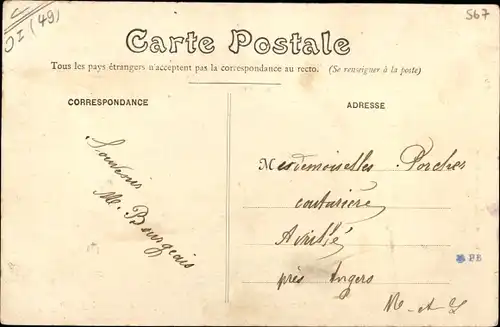 OI (49)
567
Carte Postale
Tous les pays étrangers n'acceptent pas la correspondance au recto. (Se renseigner à la poste)
CORRESPONDANCE
ADRESSE
Souvenir
M. Bourgeais
Mesdemoiselles Porcher
couturière
Avrillé
près Angers
M-et-L
PB